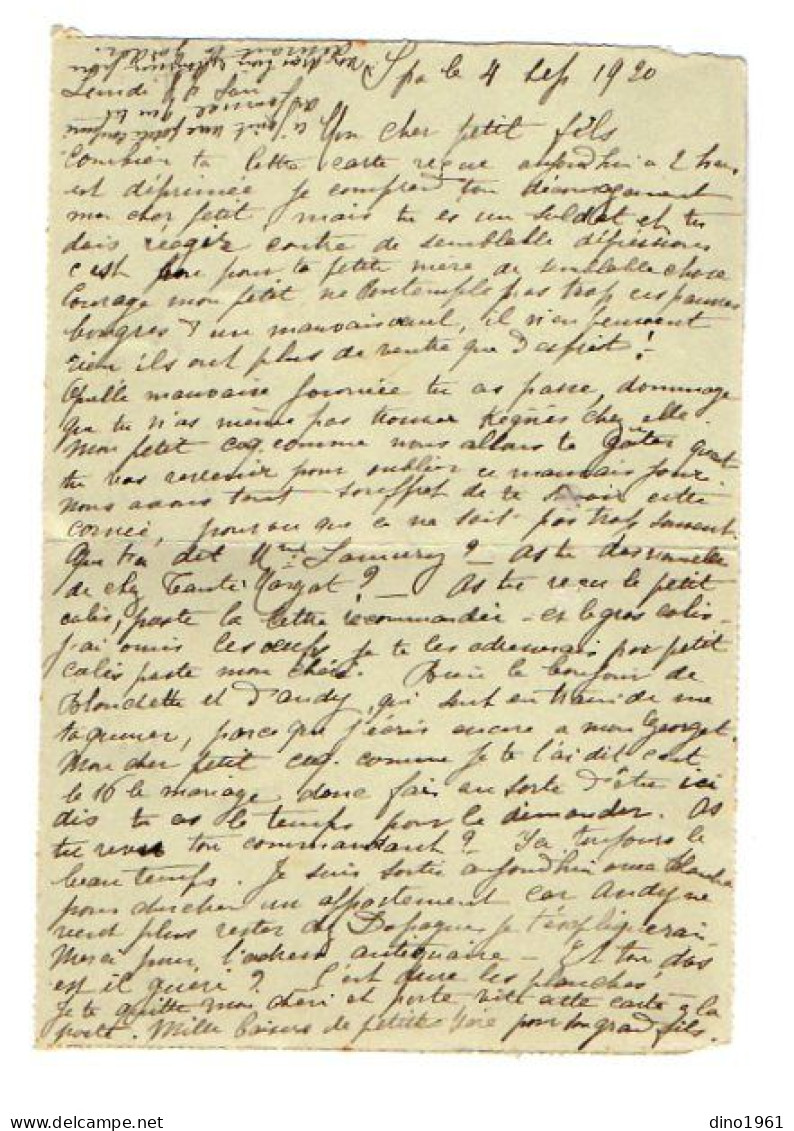 Spa le 4 sep 1920
Mon cher petit fils
Combien ta lettre carte reçue aujourd'hui a 2 heures
est déprimée je comprend ton découragement
mon cher petit, mais tu es un soldat et tu
dois réagir contre de semblable dépressions
c'est pour ta petite mère de semblable chose
Courage mon petit, ne contemple pas trop ces pauvres
bougres d'un mauvais oeuil, il n'en peuvent
rien ils ont plus de ventre que d'esprit !
Quelle mauvaise journée tu as passe, dommage
que tu n'as même pas trouver chez elle.
Mon petit coq. comme nous allons te gâter quand
tu vas revenir pour oublier ce mauvais jour
nous avons tout souffert de te savoir cette
corvée, pourvu que ça ne soit pas trop souvent.
Que t'a dit Mme ? — As tu des nouvelles
de chez Tante Margot ? — As tu recu le petit
colis, poste la lettre recommander - et le gros colis -
j'ai omis les oeufs je te les adresserais par petit
colis poste mon chéri. le bonjour de
Blanchette et d'Andy, qui sont en train de me
taquiner, parce que j'écris encore a mon Georget.
Mon cher petit coq. comme je te l'ai dit c'est
le 16 le mariage, donc fais en sorte d'être ici
dis tu as le temps pour le demander. As
tu revu ton commandant ? Ya toujours le
beau temps. Je suis sortie aujourd'hui avec Blanche
pour chercher un appartement car Andy ne
veut plus rester chez je t'expliquerai.
Merci pour l'adresse antiquaire — Et ton dos
est il guéri ? — C'est dure les planches
Je te quitte mon chéri et porte vite cette carte a la
poste. Mille baisers de petite pour son grand fils.
dino1961